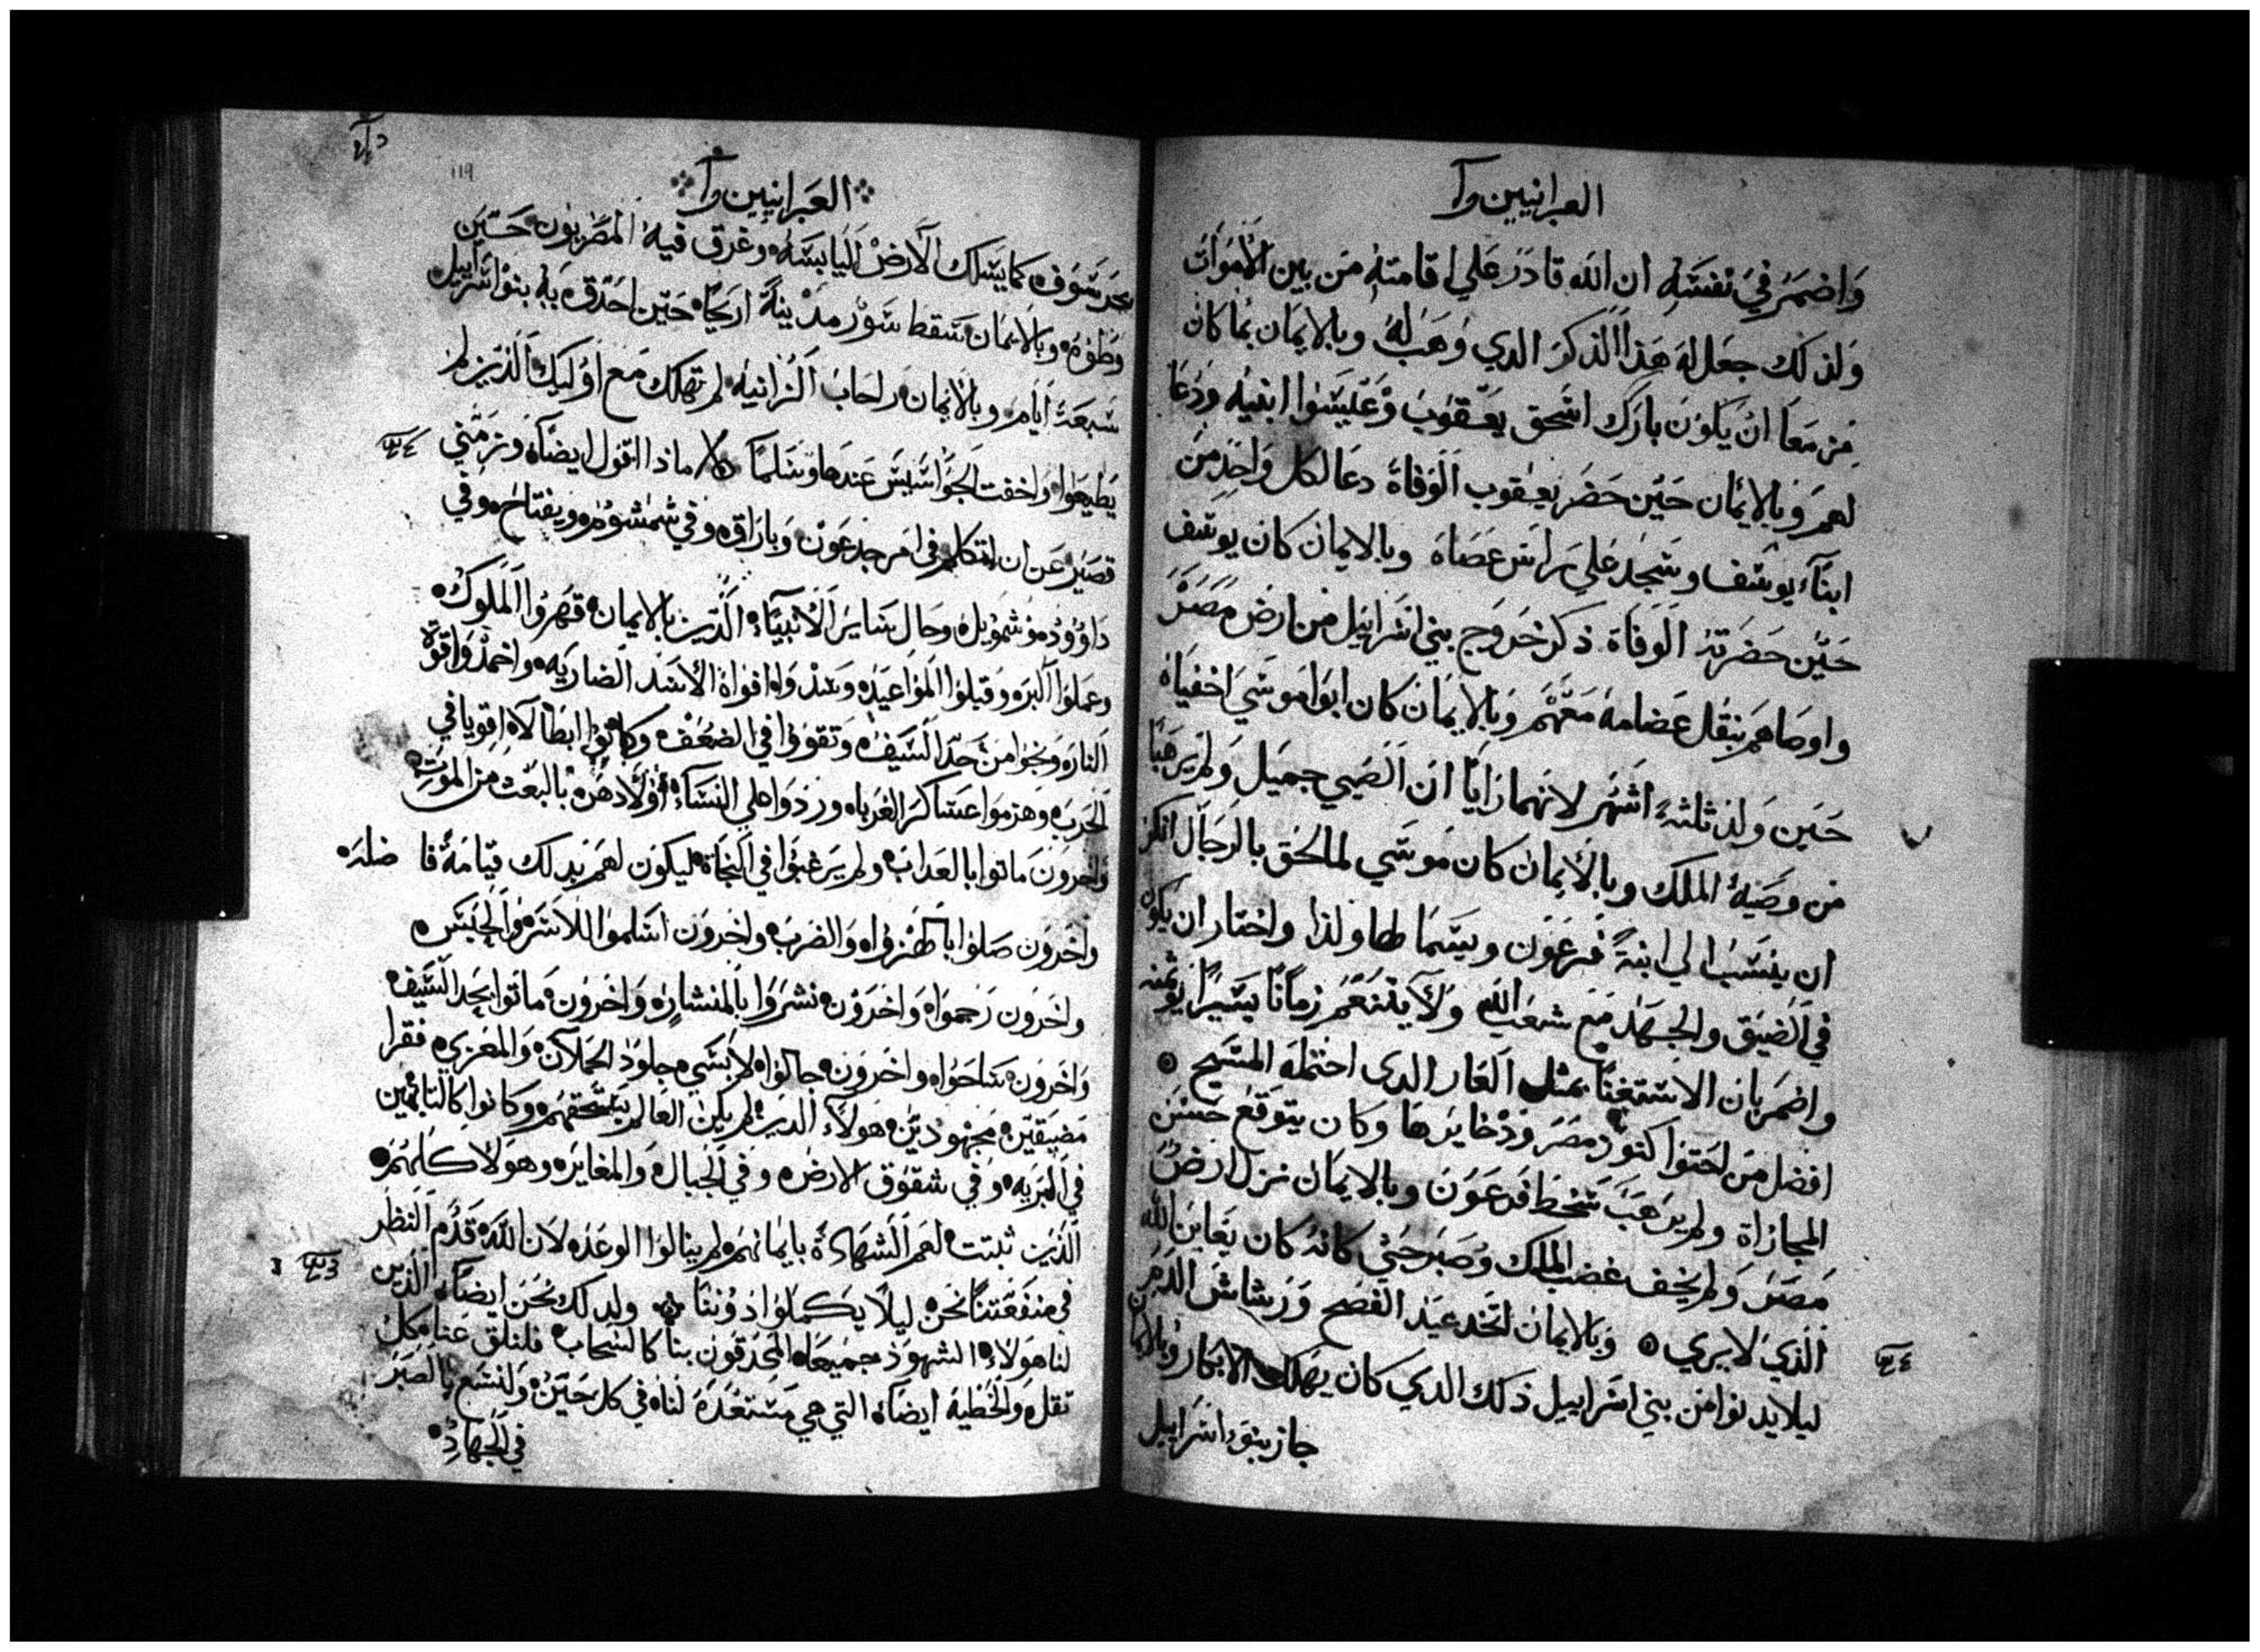 العبرانيين وآ
واضمر في نفسه ان الله قادر علي اقامته من بين الاموات
ولذلك جعل له هذا الذكر الدي وهب له وبالايمان بما كان
من معا ان يكون بارك اسحق يعقوب وعليسوا ابنيه ودعا
لهم وبالايمان حين حضر يعقوب الوفاة دعا لكل واحد من
ابنآء يوسف وسجد علي راس عصاه وبالايمان كان يوسف
حين حضرته الوفاة ذكر خروج بني اسراييل من ارض مصر
واوصاهم بنقل عضامه معهم وبالايمان كان ابوا موسي اخفياه
حين ولد ثلثة اشهر لانهما رايا ان الصبي جميل ولم يرهبا
من وصية الملك وبالايمان كان موسي لما لحق بالرجال انكر
ان ينسب الي ابنة فرعون ويسما لها ولدا واختار ان يكون
في الضيق والجهد مع شعب الله ولا يتنعم زمانا يسيرا
واضمر بان الاستغنا بمثل العار الدى احتمله المسيح
افضل من احتوا كنوز مصر ودخايرها وكان يتوقع حسن
المجازاة ولم يرهب سخط فرعون وبالايمان نزل ارض
مصر ولم يخف غضب الملك وصبر حتي كانه كان يعاين الله
الذي لا يري وبالايمان اتخد عيد الفصح ورشاش الدم
ليلا يدنوا من بني اسراييل ذلك الدي كان يهلك الابكار وبالايمان
جاز بنوء اسراييل
العبرانيين وآ
119
بحر سوف كما يسلك الارض اليابسه وغرق فيه المصريون حين
وطوه وبالايمان سقط سور مدينة اريحا حين احدق به بنوا اسراييل
سبعة ايام وبالايمان راحاب الزانيه لم تهلك مع اوليك الذين لم
يطيعوا واخفت الجواسيس عندها وسلما ماذا اقول ايضا وزمني
قصير عن ان اتكلم في امر جدعون وباراق وفي شمشوم ويفتاح وفي
داوود وشمويل وحال ساير الانبياء الذين بالايمان قهروا الملوك
وعملوا البر وقبلوا المواعيد وسدوا افواة الاسد الضاريه واخمدوا قوة
النار ونجوا من حد السيف وتقووا في الضعف وكانوا ابطالا اقويا في
الحرب وهزموا عساكر الغربا وردوا علي النساء اولادهن بالبعث من الموت
واخرون ماتوا بالعداب ولم يرغبوا في النجاة ليكون لهم بدلك قيامة فاضله
واخرون صلوا بالهزوا والضرب واخرون اسلموا للاسر والحبس
واخرون رجموا واخرون نشروا بالمنشار واخرون ماتوا بحد السيف
واخرون ساحوا واخرون جالوا لابسي جلود الحملان والمعزي فقرا
مضيقين مجهودين هولآء الدين لم يكن العالم يستحقهم وكانوا كالتايهين
في البريه وفي شقوق الارض وفي الجبال والمغاير وهولا كلهم
الذين ثبتت لهم الشهادة بايمانهم لم ينالوا الوعد لان الله قدم النظر
في منفعتنا نحن ليلا يكملوا دوننا ولدلك نحن ايضا الذين
لنا هولاء الشهود جميعا المحدقون بنا كالسحاب فلنلق عنا كل
ثقل والخطيه ايضا التي هي مستعدة لنا في كل حين ولنسع بالصبر
في الجهاد